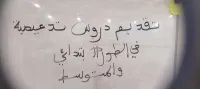 تقديم دروس تدعيمية
في الطور الابتدائي
والمتوسط